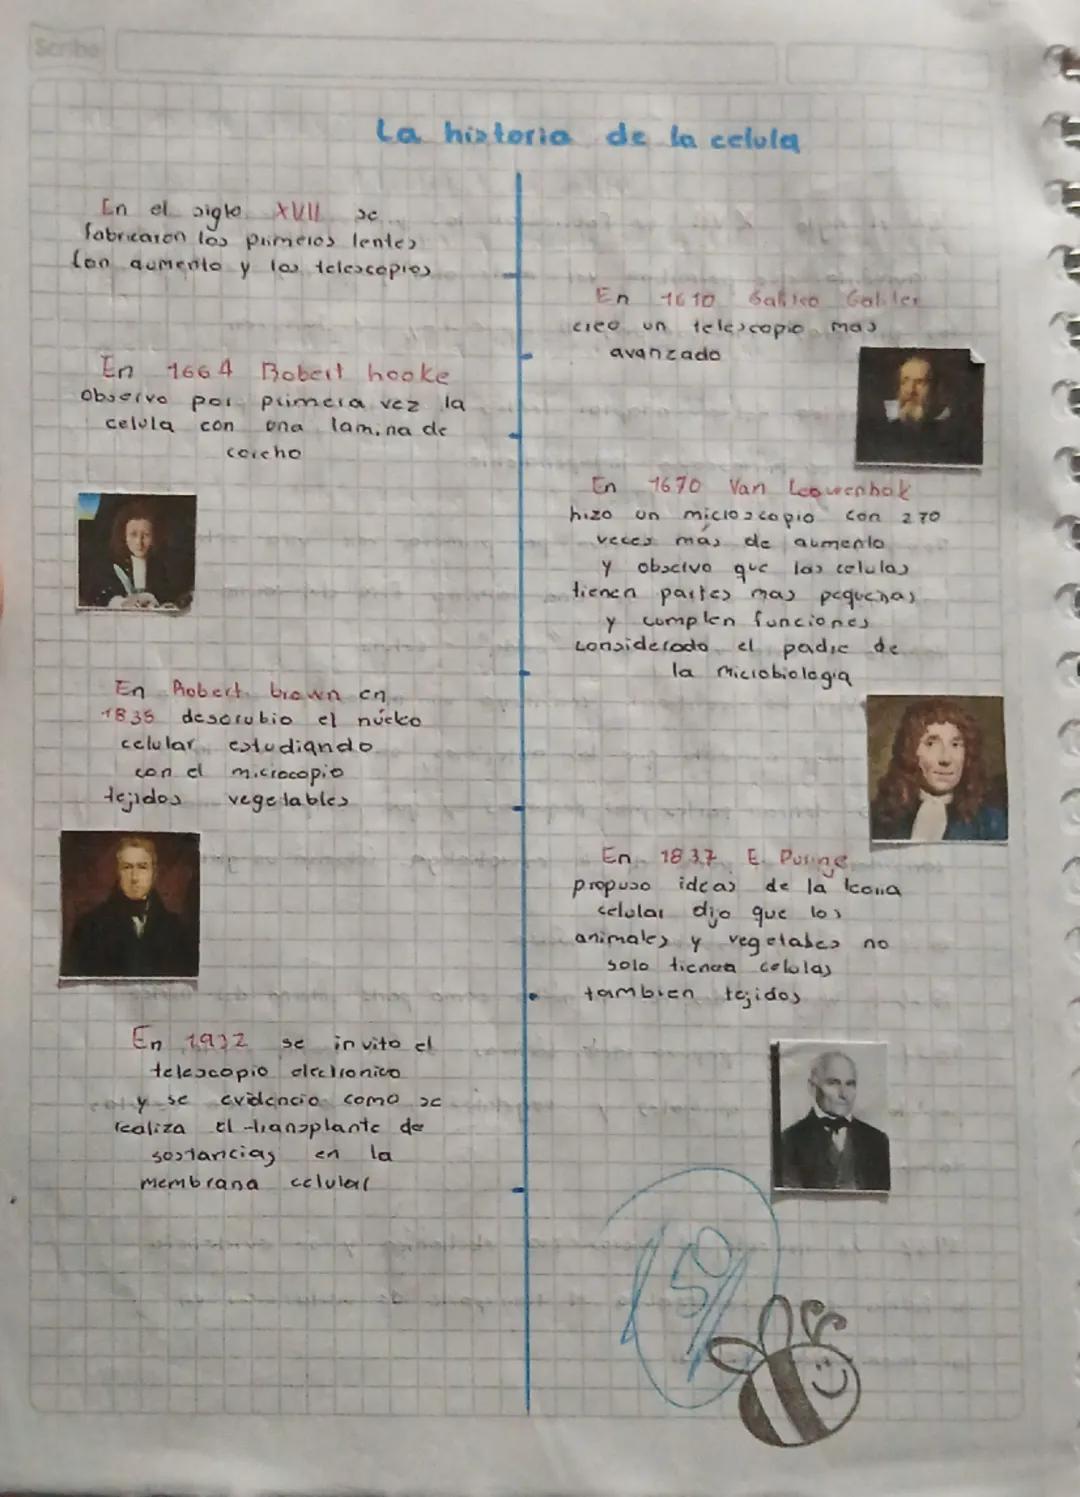 Scribe
La historia de la celula
En el siglo XVII se
fabricaron los primeros lentes
con aumento y los telescopios
En 1610 Galileo Galilei
creo un telescopio mas
avanzado
En 1664 Robert hooke
observo por primera vez la
celula con una lamina de
corcho
En 1670 Van Leowenhok
hizo un microscopio con 270
veces más de aumento
y observo que las celulas
tienen partes mas pequeñas
y cumplen funciones
considerado el padre de
la microbiologia
En Robert brown en
1835 descrubio el núcleo
celular estudiando
con el microcopio
tejidos vegetables
En 1837 E. Puringe
propuso ideas de la teoria
celular dijo que los
animales y vegetales no
solo tienen celulas
tambien tejidos
En 1932 se invito el
telescopio electronico
y se evidencio como se
realiza el transplante de
sostancias en la
membrana celular